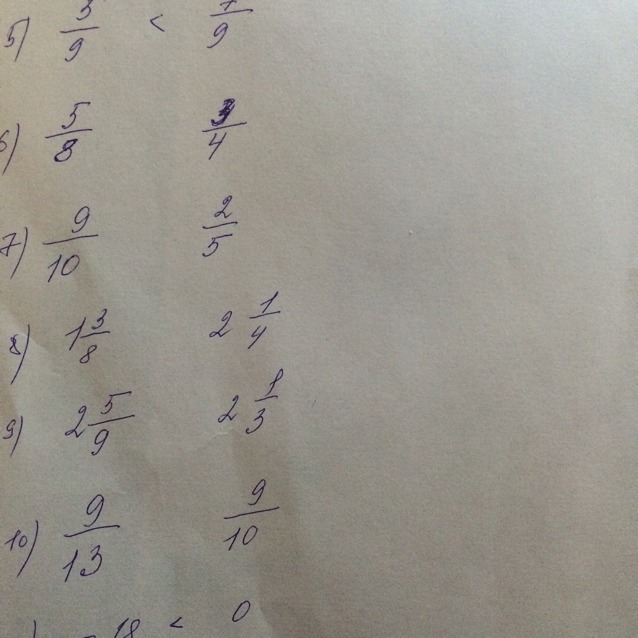 5) 3/9 < 7/9
6) 5/8 3/4
7) 9/10 2/5
8) 1 3/8 2 1/4
9) 2 5/9 2 1/3
10) 9/13 9/10
) - 18 < 0